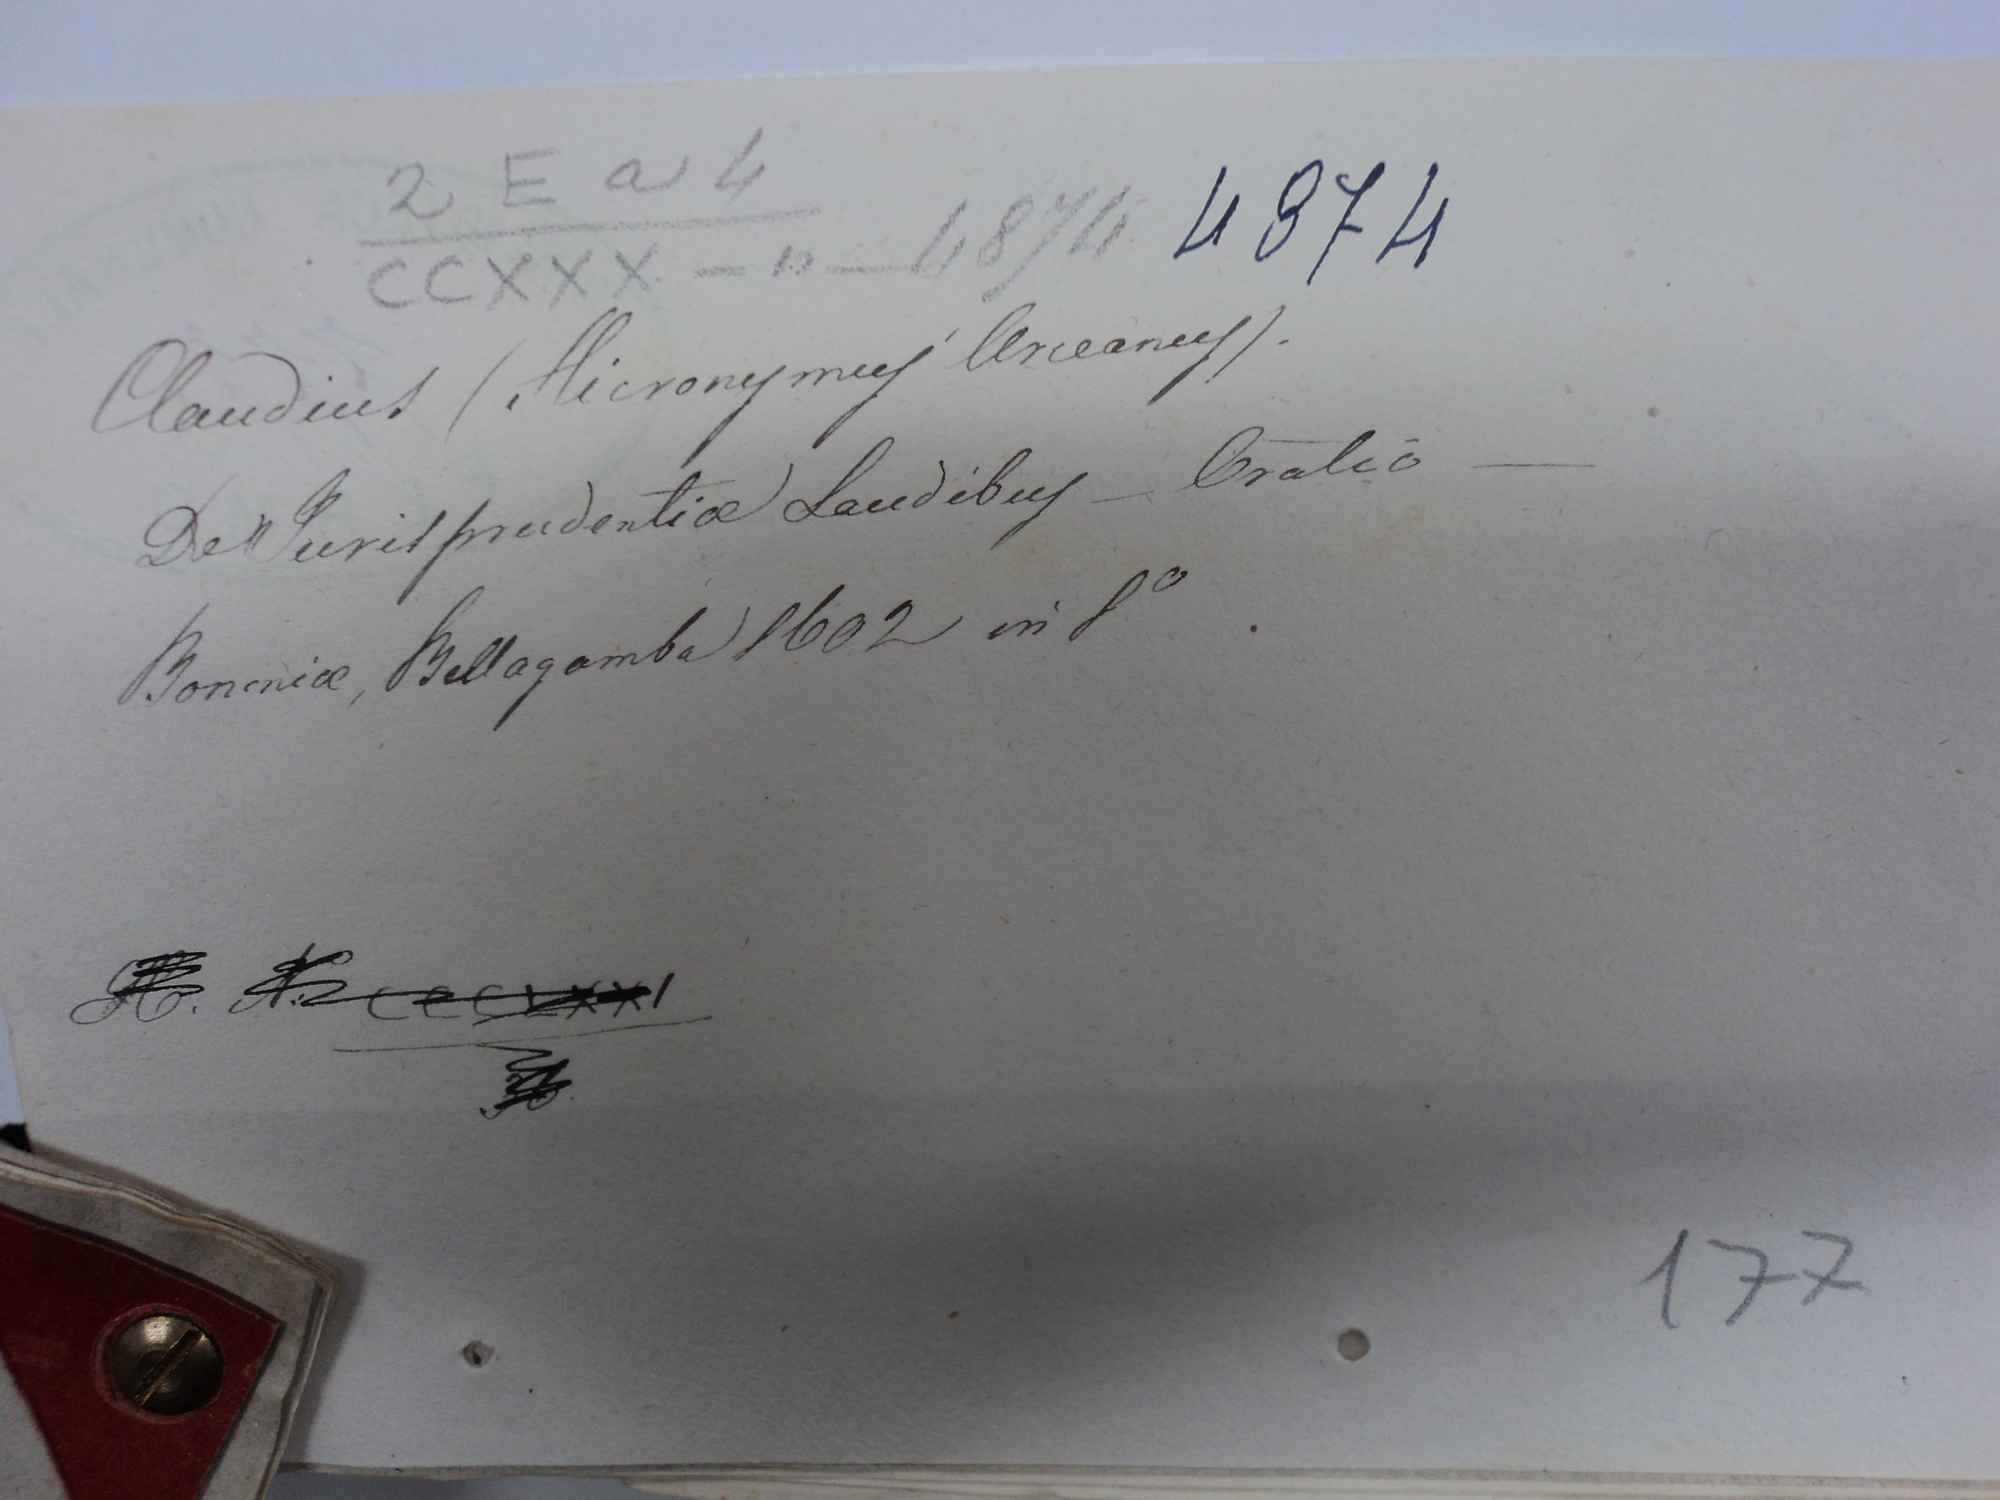 2 E a 4
CCXXX - 12 - 4874 4874
Claudius (Hieronymus Arceanus).
De Jurisprudentiæ Laudibus - Oratio -
Bononiæ, Bellagamba 1602 in 8°
177